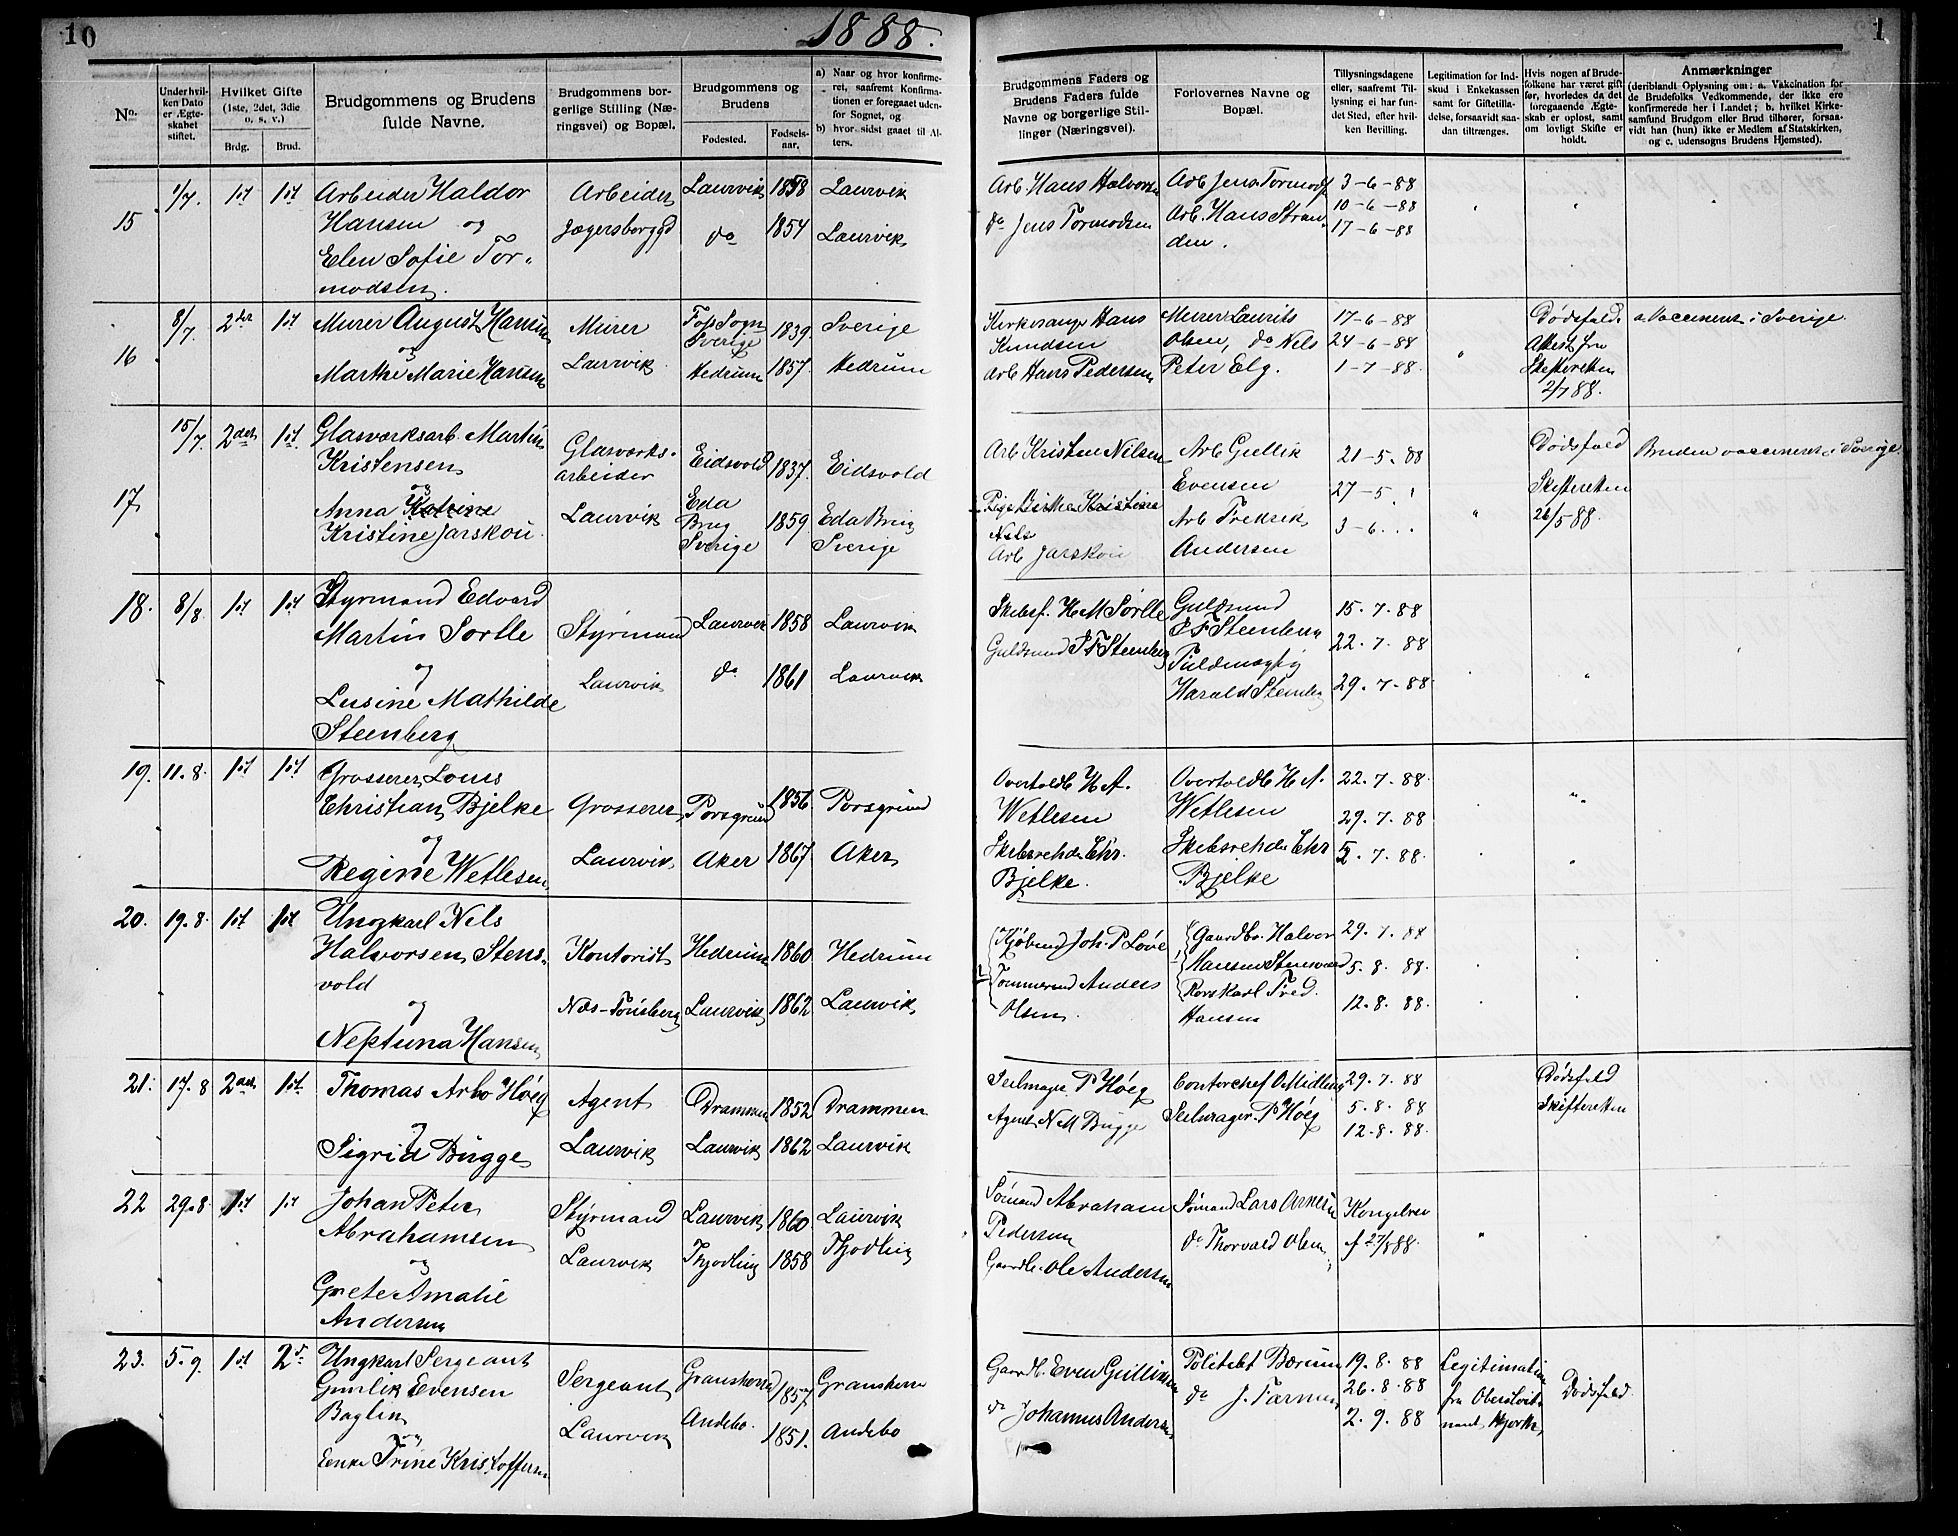 10
1888.
1
No.
Under hvilken Dato er Ægteskabet stiftet.
Hvilket Gifte (1ste, 2det, 3die o. s. v.)
Brdg.
Brud.
Brudgommens og Brudens fulde Navne.
Brudgommens borgerlige Stilling (Næringsvei) og Bopæl.
Brudgommens og Brudens
Fødested.
Fødselsaar.
a) Naar og hvor konfirmeret, saafremt Konfirmationen er foregaaet udenfor Sognet, og
b) hvor sidst gaaet til Alters.
Brudgommens Faders og Brudens Faders fulde Navne og borgerlige Stillinger (Næringsvei).
Forlovernes Navne og Bopæl.
Tillysningsdagene eller, saafremt Tillysning ei har fundet Sted, efter hvilken Bevilling.
Legitimation for Indskud i Enkekassen samt for Giftetilladelse, forsaavidt saadan tiltrænges.
Hvis nogen af Brudefolkene har været gift før, hvorledes da det foregaaende Ægteskab er opløst, samt om lovligt Skifte er holdt.
Anmærkninger
(deriblandt Oplysning om: a. Vakcination for de Brudefolks Vedkommende, der ikke ere konfirmerede her i Landet; b. hvilket Kirkesamfund Brudgom eller Brud tilhører, forsaavidt han (hun) ikke er Medlem af Statskirken, og c. udensogns Brudens Hjemsted).
15
1/7.
1st
1st
Arbeider Haldor
Hansen og
Elen Sofie Tor-
modsen.
Arbeider
Jægersborggd
Laurvik
do
1858
1854
Laurvik
Laurvik
Arb Hans Halvorsen
do Jens Tormodsen
Arb Jens Tormods
Arb. Hans Stran
den.
3-6-88
10-6-88
17-6-88
16
8/7.
2det
1st
Murer August Hansen
og
Marthe Marie Hansen
Murer
Laurvik
Foss Sogn
Sverige
Hedrum
1839.
1857.
Sverige
Hedrum
Kirkesanger Hans
Knudsen
Arb Hans Pedersen
Murer Laurits
Olsen, do Nils
Peter Elg.
17-6-88
24-6-88
1-7-88.
Dødsfald.
Attest fra
Skifteretten
2/7 88.
a Vaccineret i Sverige.
17
15/7.
2det
1st
Glasværksarb. Martin
Kristensen
og
Anna Katrine
Kristine Jarskou.
Glasværks-
arbeider
Laurvik
Eidsvold
Eda
Brug
Sverige
1837.
1859.
Eidsvold
Eda Brug
Sverige
Arb Kristen Nilsen
Pige Kristine
Nils
Arb Jarskou
Arb Gullik
Evensen
Arb Fredrik
Andersen
21-5.88
27-5
3-6
Dødsfald
Skifteretten
26/5 88.
Bruden vaccineret i Sverige.
18.
8/8
1st
1st
Styrmand Edvard
Martin Sørlle
og
Lusine Mathilde
Steenberg
Styrmand
Laurvik
Laurvik
do
1858
1861
Laurvik
Laurvik
Skibsf. H M Sørlle
Guldsmed P F Steenberg
Guldsmed
P F Steenberg
Fuldmægtig
Harald Steenbg
15.7.88
22.7.88
29.7-88
19.
11.8.
1st
1st
Grosserer Louis
Christian Bjelke
og
Regine Wetlesen
Grosserer
Laurvik
Porsgrund
Aker
1856
1867.
Porsgrund
Aker
Overtoldb H A.
Wetlesen
Skibsrehder Chr.
Bjelke.
Overtoldb H A.
Wetlesen
Skibsrehder Chr
Bjelke
22.7.88.
29.7.88
5.7.88.
20.
19.8.
1st
1st
Ungkarl Nels
Halvorsen Stens-
vold
og
Neptuna Hansen
Kontorist
Næs-Tønsberg
Hedrum
Laurvik
1860
1862
Hedrum
Laurvik
Kjøbmd Joh. P Løve
Tømmermd Anders
Olsen.
Gaardbr. Halvor
Hansen Stensvold
Rorskarl Fred.
Hansen
29.7.88
5.8.88.
12.8.88.
21.
17.8
2det
1st
Thomas Arbo Høeg
og
Sigrid Bugge
Agent
Laurvik
Drammen
Laurvik
1852
1862
Drammen
Laurvik
Seilmager P Høeg
Agent N M Bugge
Contorchef O Midling
Seilmager P Høeg
29.7.88
5.8.88
12.8.88.
Dødsfald
Skifteretten
22
29.8
1st
1st
Johan Peter
Abrahamsen
og
Grete Amalie
Andersen
Styrmand
Laurvik
Laurvik
Thjodling
1860.
1858
Laurvik
Thjodling
Sømand Abraham
Pedersen
Gaardbr. Ole Andersen
Sømand Lars Arnesen
do Thorvald Olsen
Kongebrev
af 27/8 88.
23.
5.9.
1st
2d
Ungkarl Sergeant
Gunlik Evensen
Baglin
og
Enke Trine Kristoffersen
Sergeant
Laurvik
Gransherred
Andebo.
1857.
1851.
Gransherred
Andebo
Gaardb. Even Gullixsen
do Johannes Andersen
Politibt Bærum
do J. Farmen
19.8.88
26.8.88
2.9.88
Legitimation
fra Oberstløit-
nant Hjorth
Dødsfald.